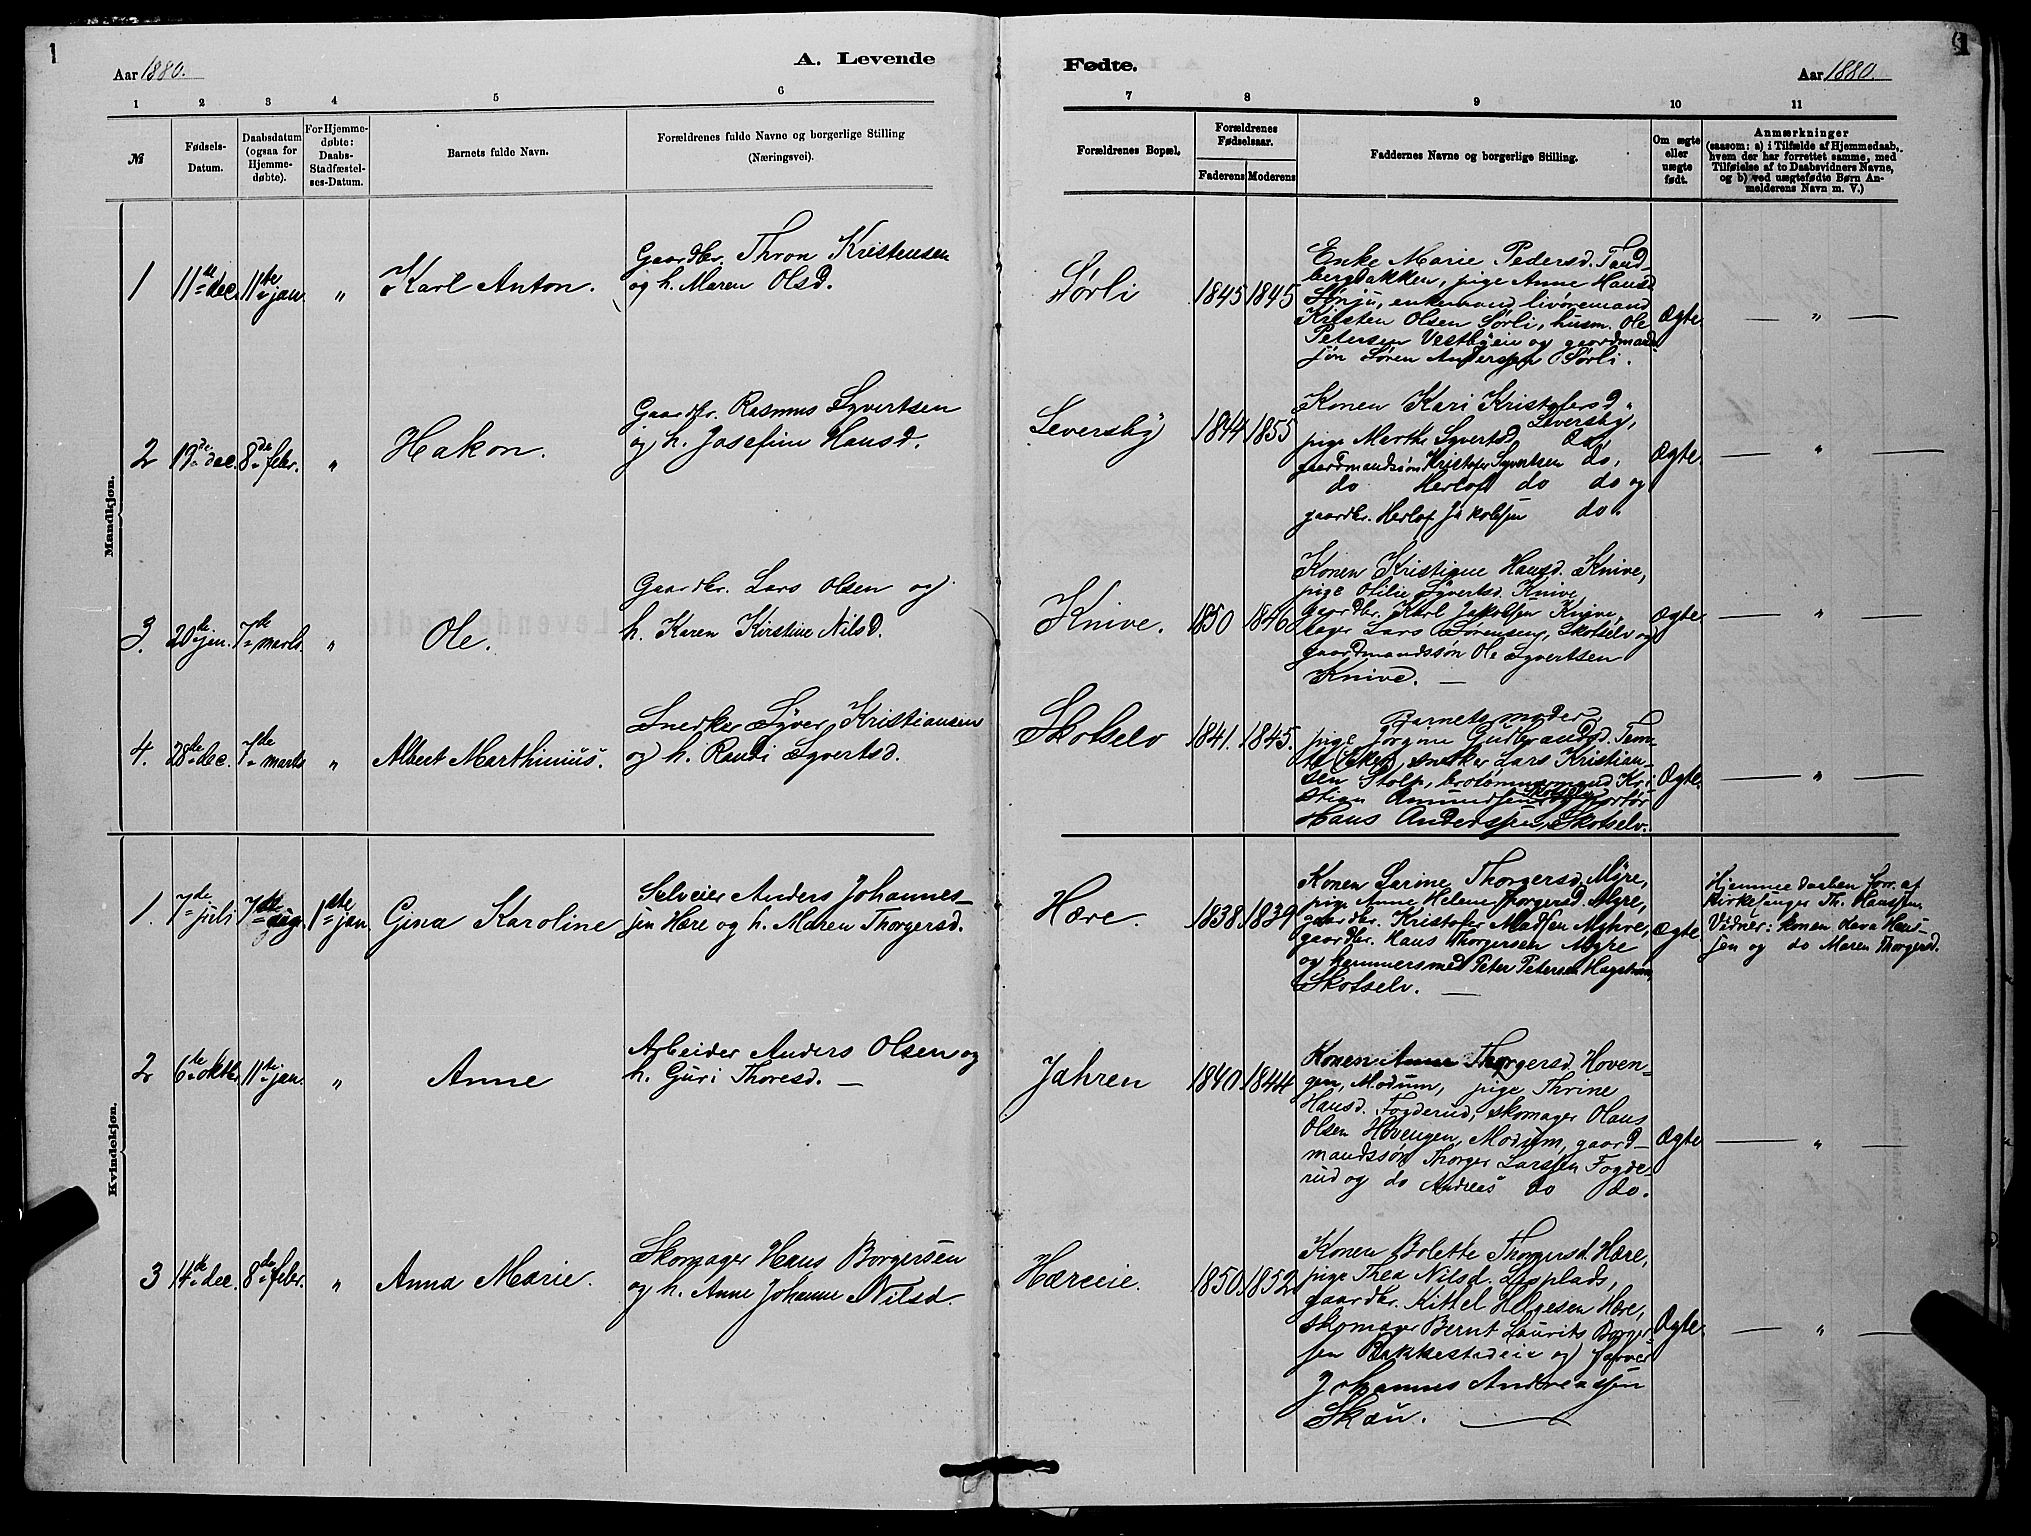 1
Aar 1880.
A. Levende
1 2 3 4 5 6
№
Fødsels-
Datum.
Daabsdatum
(ogsaa for
Hjemme-
døbte).
For Hjemme-
døbte:
Daabs-
Stadfæstel-
ses-Datum.
Barnets fulde Navn.
Forældrenes fulde Navne og borgerlige Stilling
(Næringsvei).
Mandkjøn.
1 11te dec. 11te jan. " Karl Anton.
Gaardbr. Thron Kristensen
og h. Maren Olsd.
2 19de dec. 8de febr. " Hakon.
Gaardbr. Rasmus Syvertsen
og h. Josefine Hansd.
3. 20de jan. 7de marts " Ole.
Gaardbr. Lars Olsen og
h. Karen Kirstine Nilsd.
4. 28de dec. 7de marts " Albert Marthinius.
Snedker Syver Kristiansen
og h. Randi Syvertsd.
Kvindekjøn.
1. 7de juli 7de aug. 1ste jan. Gina Karoline
Selveier Anders Johannes-
sen Hære og h. Maren Thorgersd.
2 6te oktbr. 11te jan. " Anne
Arbeider Anders Olsen og
h. Guri Thoresd. —
3 14de dec. 8de febr. " Anna Marie.
Skomager Hans Borgersen
og h. Anne Johanne Nilsd.
Fødte.
1
Aar 1880.
7 8 9 10 11
Forældrenes Bopæl,
Forældrenes
Fødselsaar.
Faderens Moderens
Faddernes Navne og borgerlige Stilling.
Om ægte
eller
uægte
født.
Anmærkninger
(saasom: a) i Tilfælde af Hjemmedaab,
hvem der har forrettet samme, med
Tilføielse af to Daabsvidners Navne,
og b) ved uægtefødte Børn An-
melderens Navn m. V.)
Sørli 1845 1845 Ægte — " —
Enke Marie Pedersd. Tand-
bergbakken, pige Anne Hansd
enkemand livøremand
Kristen Olsen Sørli, husm. Ole
Petersen Vestbyeie og gaardmand-
søn Søren Andersen Sørli.
Leversby 1844 1855 Ægte. — " —
Konen Kari Kristofersd.
Leversby,
pige Marthe Syvertsd. do,
gaardmandssøn Kristofer Syvertsen do,
do Herlof do do og
gaardbr. Herlof Jakobsen do.
Knive. 1850 1846 Ægte. — " —
Konen Kristiane Hansd. Knive,
pige Otilie Syvertsd. Knive,
gaardbr. Karl Jakobsen Knive,
Lars Sørensen, Skotselv og
gaardmandssøn Ole Syvertsen
Knive. —
Skotselv 1841. 1845. Ægte. — " —
Barnets moder,
pige Jorgine Gudbrandsd. Tem-
te (Eker), snedker Lars Kristian-
sen Stolp, brotømmermand Kri-
stian Amundsen Skotselv og
Hans Anderssen, Skotselv.
Hære. 1838. 1839 Ægte
Konen Larine Thorgersd. Myre,
pige Anne Helene Thorgersd. Myre,
gaardbr. Kristofer Madsen Myhre,
gaardbr. Hans Thorgersen Myre
og hammersmed Peter Petersen Hagstrøm,
Skotselv. —
Hjemmedaaben forr. af
kirkesanger Th. Hanssen,
Vidner: konen Lava Hans-
sen og do Maren Thorgersd.
Jahren 1840. 1844 Ægte — " —
Konen Anne Thorgersd. Hoven-
gen, Modum, pige Thrine
Hansd. Fogderud, skomager Olaus
Olsen Hovengen, Modum, gaard-
mandssøn Thorger Larssen Fogde-
rud og do Andreas do do.
Hæreie. 1850. 1852 Ægte. — " —
Konen Bolette Thorgersd. Hære,
pige Thea Nilsd. Lisplads,
gaardbr. Kittel Helgesen Hære,
skomager Bernt Laurits Borger-
sen Bakkestadeie og farver
Johannes Andreassen
Skau. —